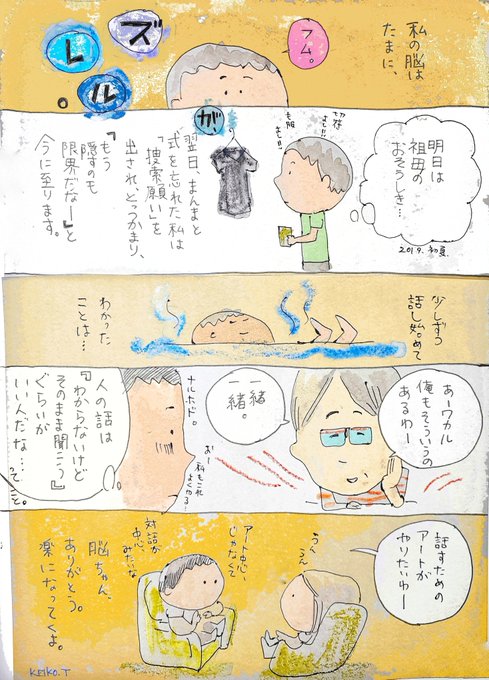 私の脳は
たまに、
フム。
ズ
レ
ル
。
が、
明日は
祖母の
おそうしき…
2019.初夏.
切符
よし!!
も服
よし!!
翌日、まんまと
式を忘れた私は
「捜索願い」を
出されとっつかまり、
『もう
隠すのも
限界だなー』と
今に至ります。
少しずつ
話し始めて
わかった
ことは…
あーワカル
俺もそういうの
あるわー
一緒
一緒。
ナルホド。
おー
私もこれ
よくやる?
人の話は
『わからないけど
そのまま聞こう』
ぐらいが
いいんだな…
ってこと。
話すための
アートが
やりたいわー
うん
うん
アート中心、
じゃなくて
対話が
中心、
みたいな
脳ちゃん、
ありがとう。
楽になってくよ。
KEIKO.T